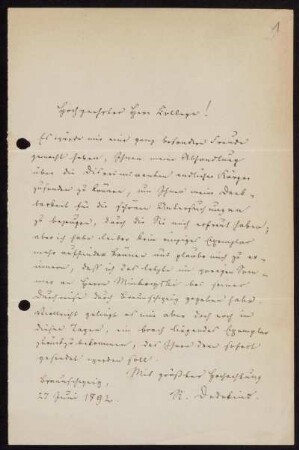 1
Hochgeehrter Herr Kollege!
Es würde mir eine ganz besondere Freude
gemacht haben, Ihnen meine Abhandlung
über die Discriminanten endlicher Körper
zusenden zu können, um Ihnen meine Dank-
barkeit für die schönen Untersuchungen
zu bezeugen, durch die Sie mich erfreut haben;
aber ich habe leider kein einziges Exemplar
mehr auffinden können und glaube mich zu er-
innern, daß ich das letzte im vorigen Som-
mer an Herrn Minkowski bei seiner
Durchreise durch Braunschweig gegeben habe.
Vielleicht gelingt es mir aber doch noch in
diesen Tagen, ein brach liegendes Exemplar
zurückzubekommen, das Ihnen dann sofort
gesendet werden soll.
Mit größter Hochachtung
Braunschweig,
27 Juni 1892.
R. Dedekind.